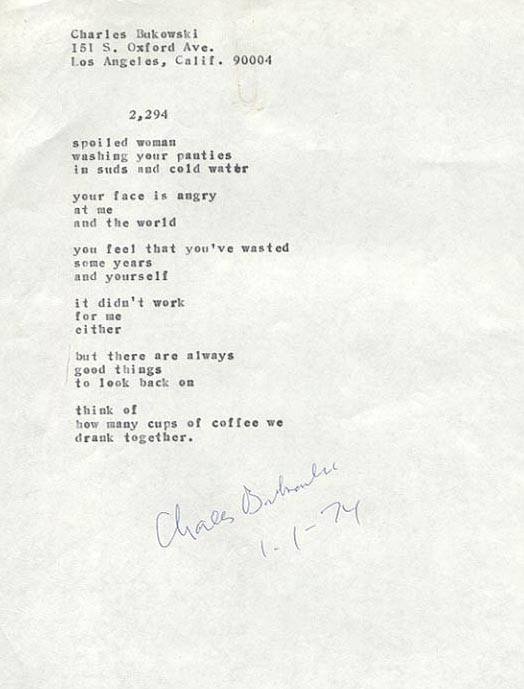 Charles Bukowski
151 S. Oxford Ave.
Los Angeles, Calif. 90004
2,294
spoiled woman
washing your panties
in suds and cold water
your face is angry
at me
and the world
you feel that you've wasted
some years
and yourself
it didn't work
for me
either
but there are always
good things
to look back on
think of
how many cups of coffee we
drank together.
Charles Bukowski
1-1-74